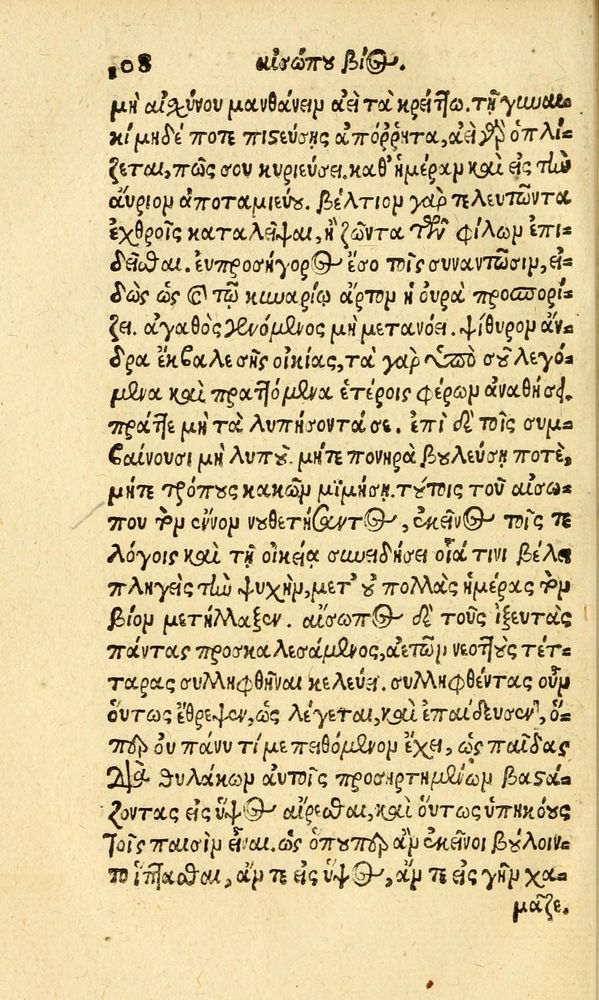 108 αἰσώπου βίος.
μὴ αἰσχύνου μανθάνειν ἀεὶ τὰ κρείττω. τῇ γυναι-
κὶ μηδέ ποτε πιστεύσῃς ἀπόρρητα, ἀεὶ γὰρ ὁπλί-
ζεται, πῶς σου κυριεύσει. καθ' ἡμέραν καὶ εἰς τὴν
αὔριον ἀποταμιεύου. βέλτιον γὰρ τελευτῶντα
ἐχθροῖς καταλεῖψαι, ἢ ζῶντα τῶν φίλων ἐπι-
δεῖσθαι. εὐπροσήγορος ἔσο τοῖς συναντῶσιν, εἰ-
δὼς ὡς καὶ τῷ κυναρίῳ ἄρτον ἡ οὐρὰ προσπορί-
ζει. ἀγαθὸς γενόμενος μὴ μετανόει. ψίθυρον ἄν-
δρα ἔκβαλε σῆς οἰκίας, τὰ γὰρ ὑπὸ σοῦ λεγό-
μενα καὶ πραττόμενα ἑτέροις φέρων ἀναθήσει.
πράττε μὴ τὰ λυπήσοντά σε. ἐπὶ δὲ τοῖς συμ-
βαίνουσι μὴ λυποῦ. μήτε πονηρὰ βουλεύσῃ ποτὲ,
μήτε τρόπους κακῶν μιμήσῃ. τούτοις τοῦ αἰσώ-
που τὸν ἔννον νουθετήσαντος, ἐκεῖνος τοῖς τε
λόγοις καὶ τῇ οἰκείᾳ συνειδήσει οἷά τινι βέλει
πληγεὶς τὴν ψυχὴν, μετ' οὐ πολλὰς ἡμέρας τὸν
βίον μετήλλαξεν. αἴσωπος δὲ τοὺς ἰξευτὰς
πάντας προσκαλεσάμενος, ἀετῶν νεοττοὺς τέτ-
ταρας συλληφθῆναι κελεύει. συλληφθέντας οὖν
οὕτως ἔθρεψεν, ὡς λέγεται, καὶ ἐπαίδευσεν, ὅ-
περ οὐ πάνυ τί με πειθόμενον ἔχει, ὡς παῖδας
διὰ θυλάκων αὐτοῖς προσηρτημένων βαστά-
ζοντας εἰς ὕψος αἴρεσθαι, καὶ οὕτως ὑπηκόους
τοῖς παισὶν εἶναι. ὡς ὅπουπερ ἂν ἐκεῖνοι βούλοιν-
το ἵπτασθαι, ἄν τε εἰς ὕψος, ἄν τε εἰς γῆν χα-
μᾶζε.